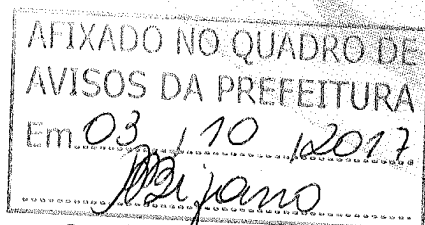 AFIXADO NO QUADRO DE
AVISOS DA PREFEITURA
Em 03 / 10 / 2017